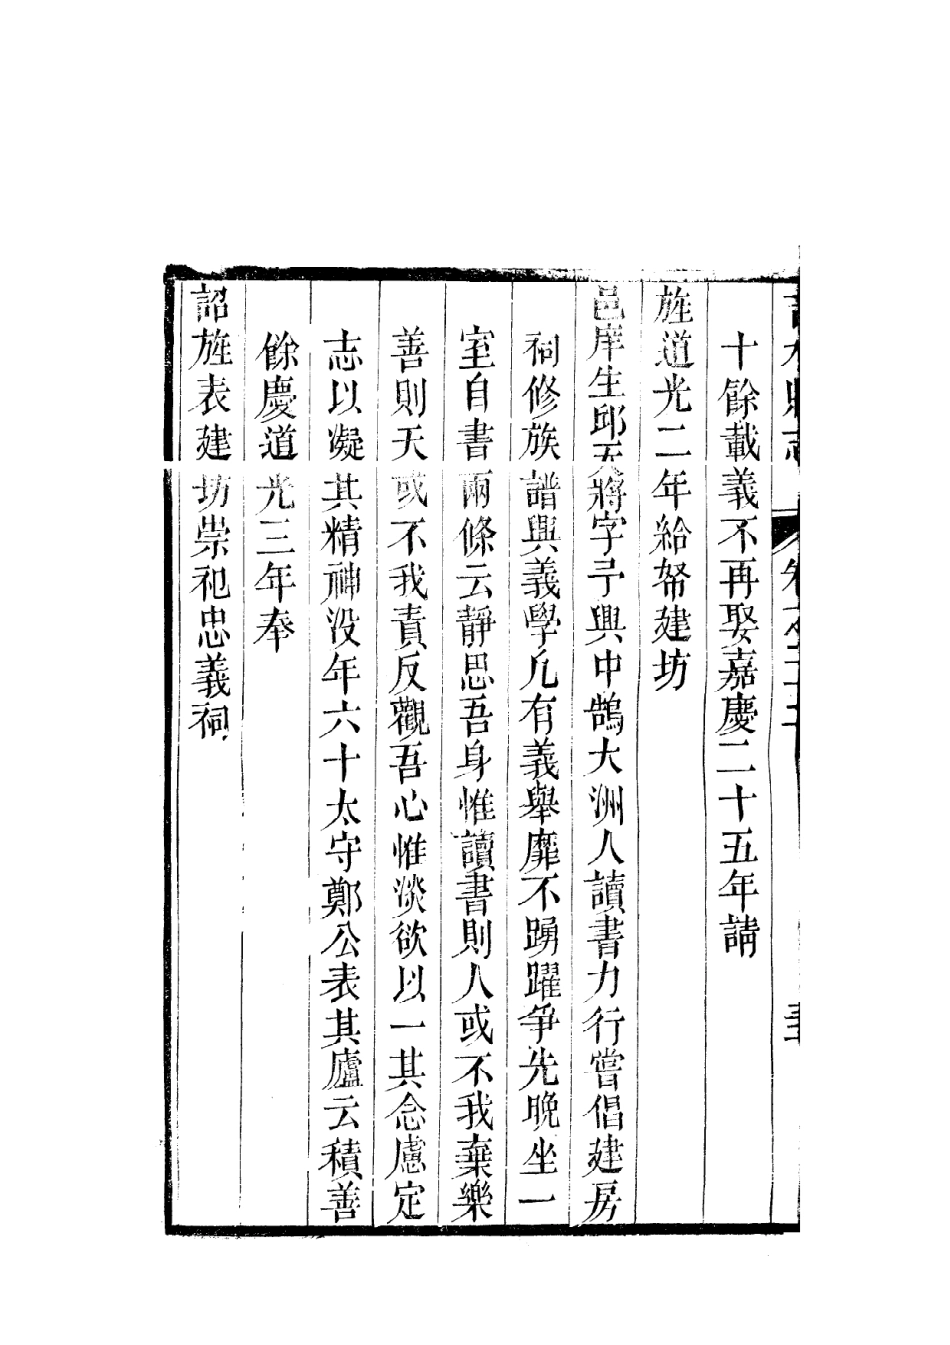 十餘載義不再娶嘉慶二十五年請
旌道光二年給帑建坊
邑庠生邱天蔣字予興中鵠大洲人讀書力行嘗倡建房
祠修族譜興義學凡有義舉靡不踴躍爭光晚坐一
室自書兩條云靜思吾身惟讀書則人或不我棄樂
善則天或不我責反觀吾心惟淡欲以一其念慮定
志以凝其精神没年六十太守鄭公表其廬云積善
餘慶道光三年奉
詔旌表建坊崇祀忠義祠